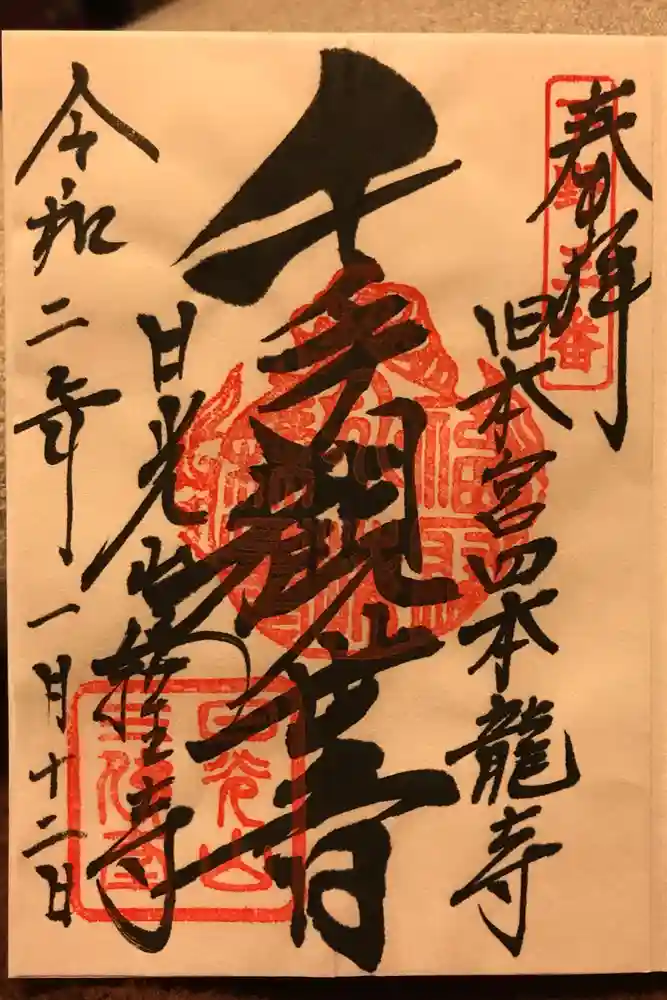 奉拝
旧本宮四本龍寺
千手觀世音
日光山輪王寺
令和二年一月十二日
日光山